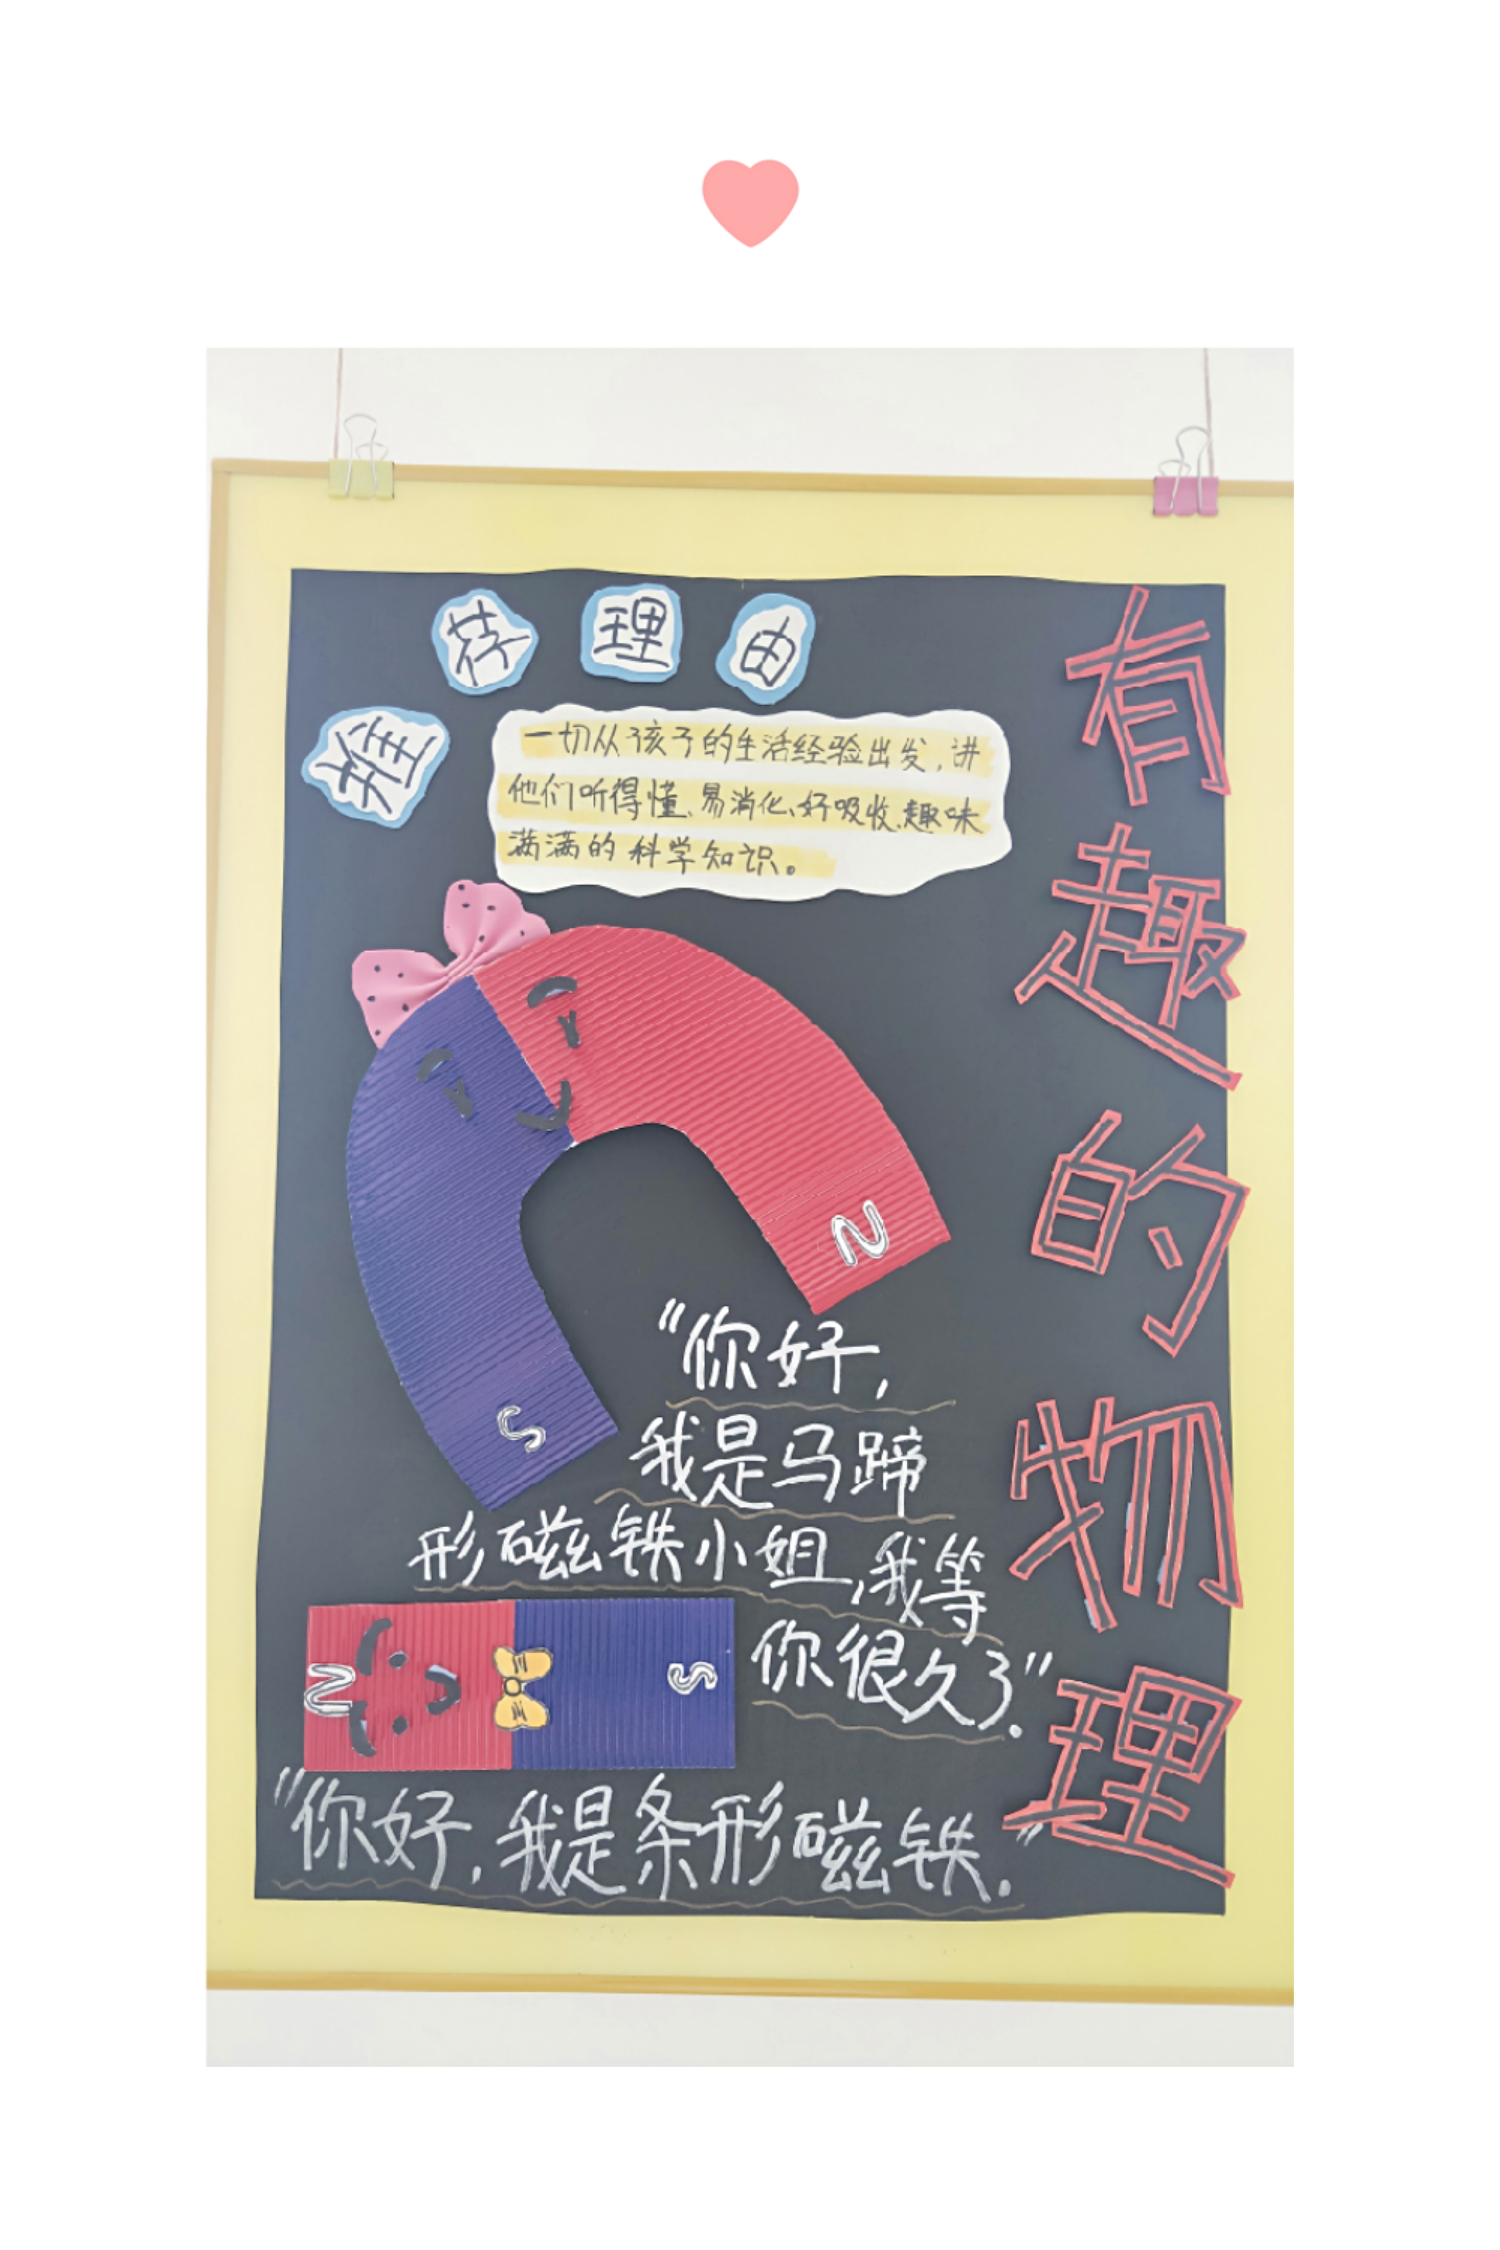 有趣的物理
推荐理由
一切从孩子的生活经验出发,讲
他们听得懂、易消化、好吸收、趣味
满满的科学知识。
N
S
"你好,
我是马蹄
形磁铁小姐,我等
你很久了."
N
S
"你好,我是条形磁铁."